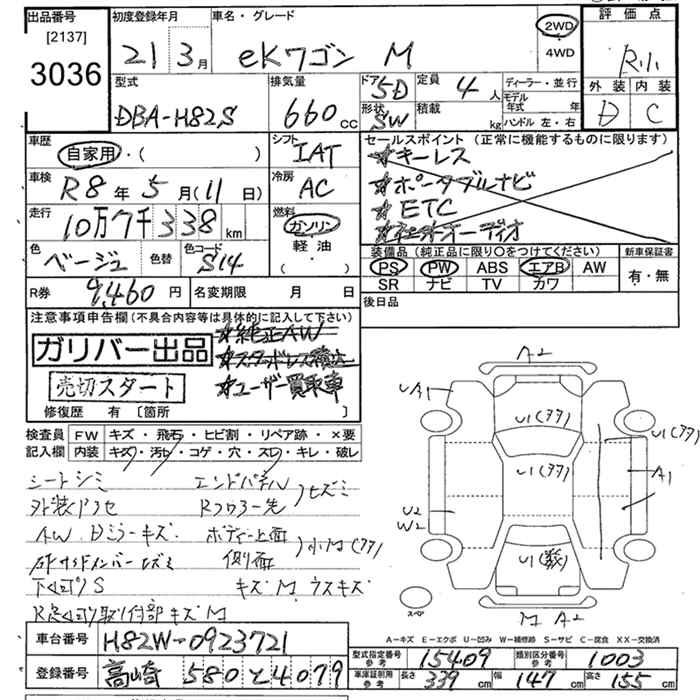 出品番号
[2137]
3036
初度登録年月
21 3月
車名・グレード
eKワゴン M
2WD
4WD
評価点
R1
外装 内装
D C
型式
DBA-H82S
排気量
660cc
ドア 5D
形状 SW
定員 4人
積載 kg
ディーラー・並行
モデル年式 年
ハンドル 左・右
車歴
自家用・( )
シフト
IAT
セールスポイント (正常に機能するものに限ります)
☆キーレス
☆ポータブルナビ
☆ETC
車検
R8年5月(11日)
冷房
AC
走行
10万7千338km
燃料
ガソリン
軽油
( ・ )
色
ベージュ
色替
色コード
S14
装備品 (純正品に限り○をつけてください)
PS PW ABS エアB AW
SR ナビ TV カワ
新車保証書
有・無
R券 9,460円
名変期限 月 日
後日品
注意事項申告欄(不具合内容等は具体的に記入して下さい)
☆純正AW
☆スタッドレス積込
☆ユーザー買取車
ガリバー出品
売切スタート
修復歴 有 [箇所 ]
検査員記入欄
FW キズ・飛石・ヒビ割・リペア跡・×要
内装 キズ・汚レ・コゲ・穴・スレ・キレ・破レ
シートシミ
エンドパネル
Rフロアー先
)ヒズミ
AW、Dミラーキズ
ボディー上面
側面
下廻りS
キズM ウスキズ
R足廻り取付部キズM
A2
UA1
U1(アタ)
U1(アタ)
U1(アタ)
A1
U2
W2
U1(数)
スペア
M A2
A-キズ E-エクボ U-凹み W-補修跡 S-サビ C-腐食 XX-交換済
車台番号 H82W-0923721
登録番号 高崎 580 と 4079
型式指定番号 参考 15409
類別区分番号 参考 1003
車庫証明用 参考 長さ 339 cm 幅 147 cm 高さ 155 cm